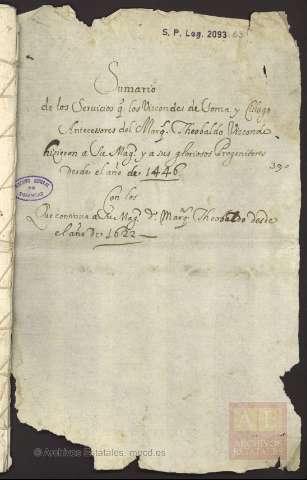 S. P. Leg. 2093 63
Sumario
de los Servicios q los Visconde de Toma y
Antecessores del Marq. Theobaldo Visconde
hizieron a Su Mag. y a sus gloriosos Progenitores
Desde el año de 1446.
39o
Con los
Que continua a Su Mag. Dn. Marq. Theobaldo desde
el año de 1622
ARCHIVO GENERAL
DE
SIMANCAS
AE
ARCHIVOS
ESTATALES
© Archivos Estatales, mecd.es